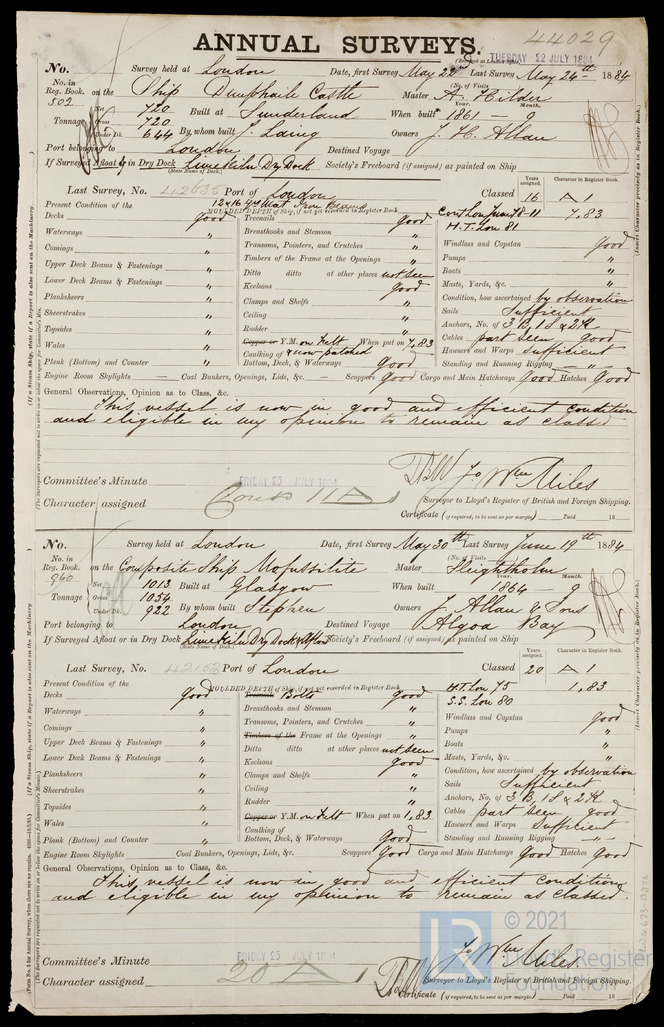 44029
ANNUAL SURVEYS.
(Received at London Office
TUESDAY 22 JULY 1884
No. Survey held at London Date, first Survey May 22nd Last Survey May 24th 1884
(No. of Visits
No. in Reg. Book. 502 on the Ship Dunphaile Castle Master A. Hilder
Year. Month.
Tonnage Net 720 Built at Sunderland When built 1861 - 9
Gross 720
Under Dk. 644 By whom built J. Laing Owners J. H. Allan
Port belonging to London Destined Voyage
If Surveyed Afloat or in Dry Dock Lime Kiln Dry Dock Society's Freeboard (if assigned) as painted on Ship
(State Name of Dock.)
Last Survey, No. 42635 Port of London Classed Years assigned. 16 Character in Register Book. A 1
7,83
Present Condition of the 12 & 16 Iron Beams
MOULDED DEPTH of Ship, if not yet recorded in Register Book
Cont Lon June 78-11
H.T. Lon 81
Decks good Treenails good
Waterways " Breasthooks and Stemson " Windlass and Capstan good
Comings " Transoms, Pointers, and Crutches " Pumps "
Upper Deck Beams & Fastenings " Timbers of the Frame at the Openings " Boats "
Lower Deck Beams & Fastenings " Ditto ditto at other places not seen Masts, Yards, &c. "
Planksheers " Keelsons good Condition, how ascertained by observation
Sheerstrakes " Clamps and Shelfs " Sails Sufficient
Topsides " Ceiling " Anchors, No. of 3 B, 1 S & 2 K
Wales " Rudder " Cables part seen good
Copper or Y.M. on Felt When put on 7,83 Hawsers and Warps sufficient
Plank (Bottom) and Counter " Caulking of & now patched Bottom, Deck, & Waterways Good Standing and Running Rigging "
Engine Room Skylights — Coal Bunkers, Openings, Lids, &c. — Scuppers Good Cargo and Main Hatchways Good Hatches Good
General Observations, Opinion as to Class, &c.
This vessel is now in good and efficient condition
and eligible in my opinion to remain as classed
Committee's Minute FRIDAY 25 JULY 1884 Jo Wm Miles
Character assigned Cont 11 A 1 Surveyor to Lloyd's Register of British and Foreign Shipping.
Certificate (if required, to be sent as per margin) Paid 18
No. Survey held at London Date, first Survey May 30th Last Survey June 19th 1884
(No. of Visits
No. in Reg. Book. 960 on the Composite Ship Mofussilite Master Heightholm
Year. Month.
Tonnage Net 1013 Built at Glasgow When built 1864 - 9
Gross 1054
Under Dk. 922 By whom built Stephen Owners J. Allan & Sons
Port belonging to London Destined Voyage Algoa Bay
If Surveyed Afloat or in Dry Dock Lime Kiln Dry Dock & Afloat Society's Freeboard (if assigned) as painted on Ship
(State Name of Dock.)
Last Survey, No. 42162 Port of London Classed Years assigned. 20 Character in Register Book. A 1
1,83
Present Condition of the MOULDED DEPTH of Ship, if not yet recorded in Register Book
H.T. Lon 75
S.S. Lon 80
Decks good Treenails Bolts good
Waterways " Breasthooks and Stemson " Windlass and Capstan good
Comings " Transoms, Pointers, and Crutches " Pumps "
Upper Deck Beams & Fastenings " Timbers of the Frame at the Openings " Boats "
Lower Deck Beams & Fastenings " Ditto ditto at other places not seen Masts, Yards, &c. "
Planksheers " Keelsons good Condition, how ascertained by observation
Sheerstrakes " Clamps and Shelfs " Sails Sufficient
Topsides " Ceiling " Anchors, No. of 3 B, 1 S & 2 K
Wales " Rudder " Cables part seen good
Copper or Y.M. on Felt When put on 1,83 Hawsers and Warps Sufficient
Plank (Bottom) and Counter " Caulking of Bottom, Deck, & Waterways Good Standing and Running Rigging "
Engine Room Skylights Coal Bunkers, Openings, Lids, &c. Scuppers Good Cargo and Main Hatchways Good Hatches Good
General Observations, Opinion as to Class, &c.
This vessel is now in good and efficient condition
and eligible in my opinion to remain as classed.
© 2021
Lloyd's Register
Foundation
Committee's Minute FRIDAY 25 JULY 1884 Jo Wm Miles
Character assigned 20 A 1 Surveyor to Lloyd's Register of British and Foreign Shipping.
Certificate (if required, to be sent as per margin) Paid 18